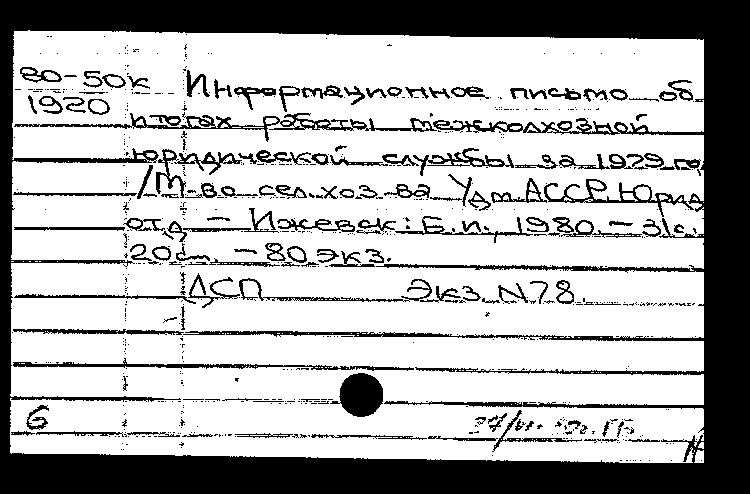 80-50к Информационное письмо об
1920 итогах работы межколхозной
юридической службы за 1979 го
/М-во сел.хоз-ва Удм.АССР.Юрид
отд. — Ижевск: Б.и., 1980. — 31с.
20см. — 80 экз.
ДСП Экз. N78.
6